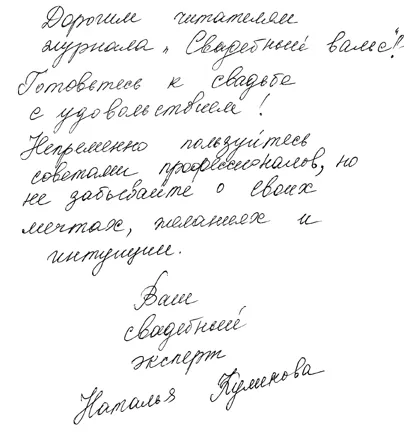 Дорогим читателям
журнала „Свадебный вальс"!
Готовьтесь к свадьбе
с удовольствием!
Непременно пользуйтесь
советами профессионалов, но
не забывайте о своих
мечтах, желаниях и
интуиции.
Ваш
свадебный
эксперт
Наталья